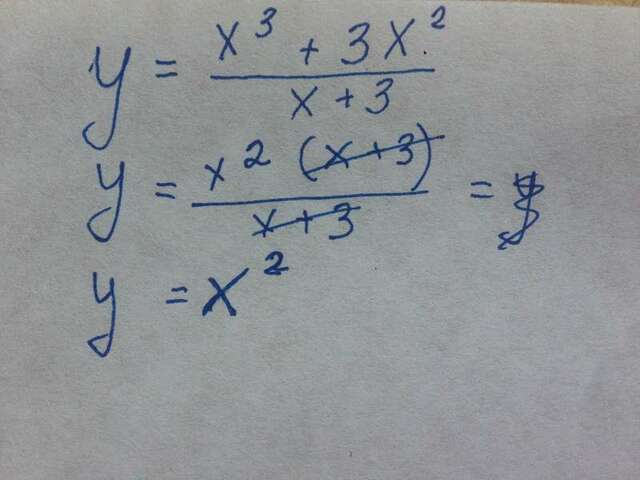 y = x³ + 3x² / x + 3
y = x² (x + 3) / x + 3 =
y = x²